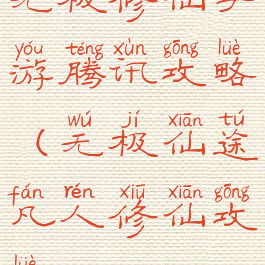 yóu téng xùn gōng lüè
游腾讯攻略
wú jí xiān tú
(无极仙途
fán rén xiū xiān gōng
凡人修仙攻
lüè